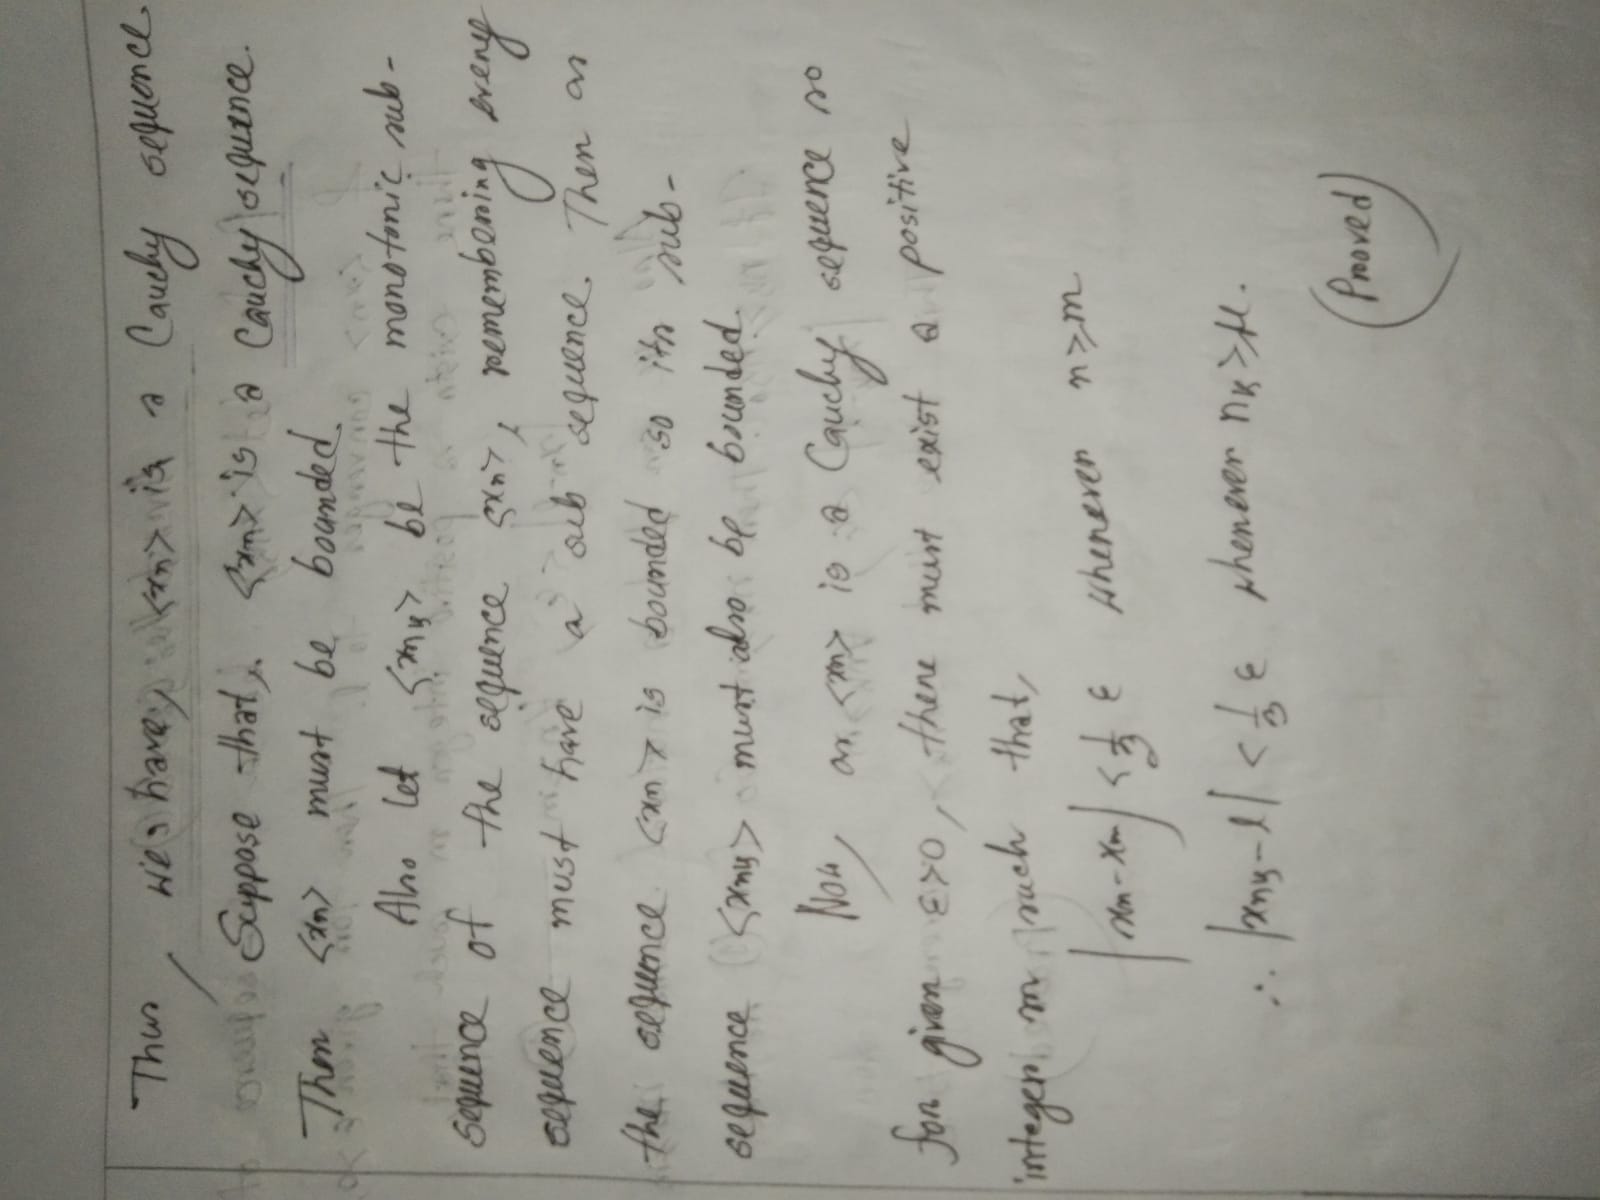 Thus, we have, <xn> is a Cauchy sequence.
Suppose that, <xn> is a Cauchy sequence.
Then <xn> must be bounded.
Also let <xnk> be the monotonic sub-
sequence of the sequence <xn>, remembering every
sequence must have a sub sequence. Then as
the sequence <xn> is bounded so its sub-
sequence <xnk> must also be bounded.
Now, as <xn> is a Cauchy sequence so
for given ε>0, there must exist a positive
integer m such that,
|xn-xm| < 1/3 ε whenever n>m
∴ |xnk-l| < 1/3 ε whenever nk>μ.
(Proved)